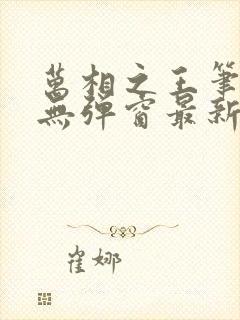 萬相之王筆
無彈窗最新
崔娜